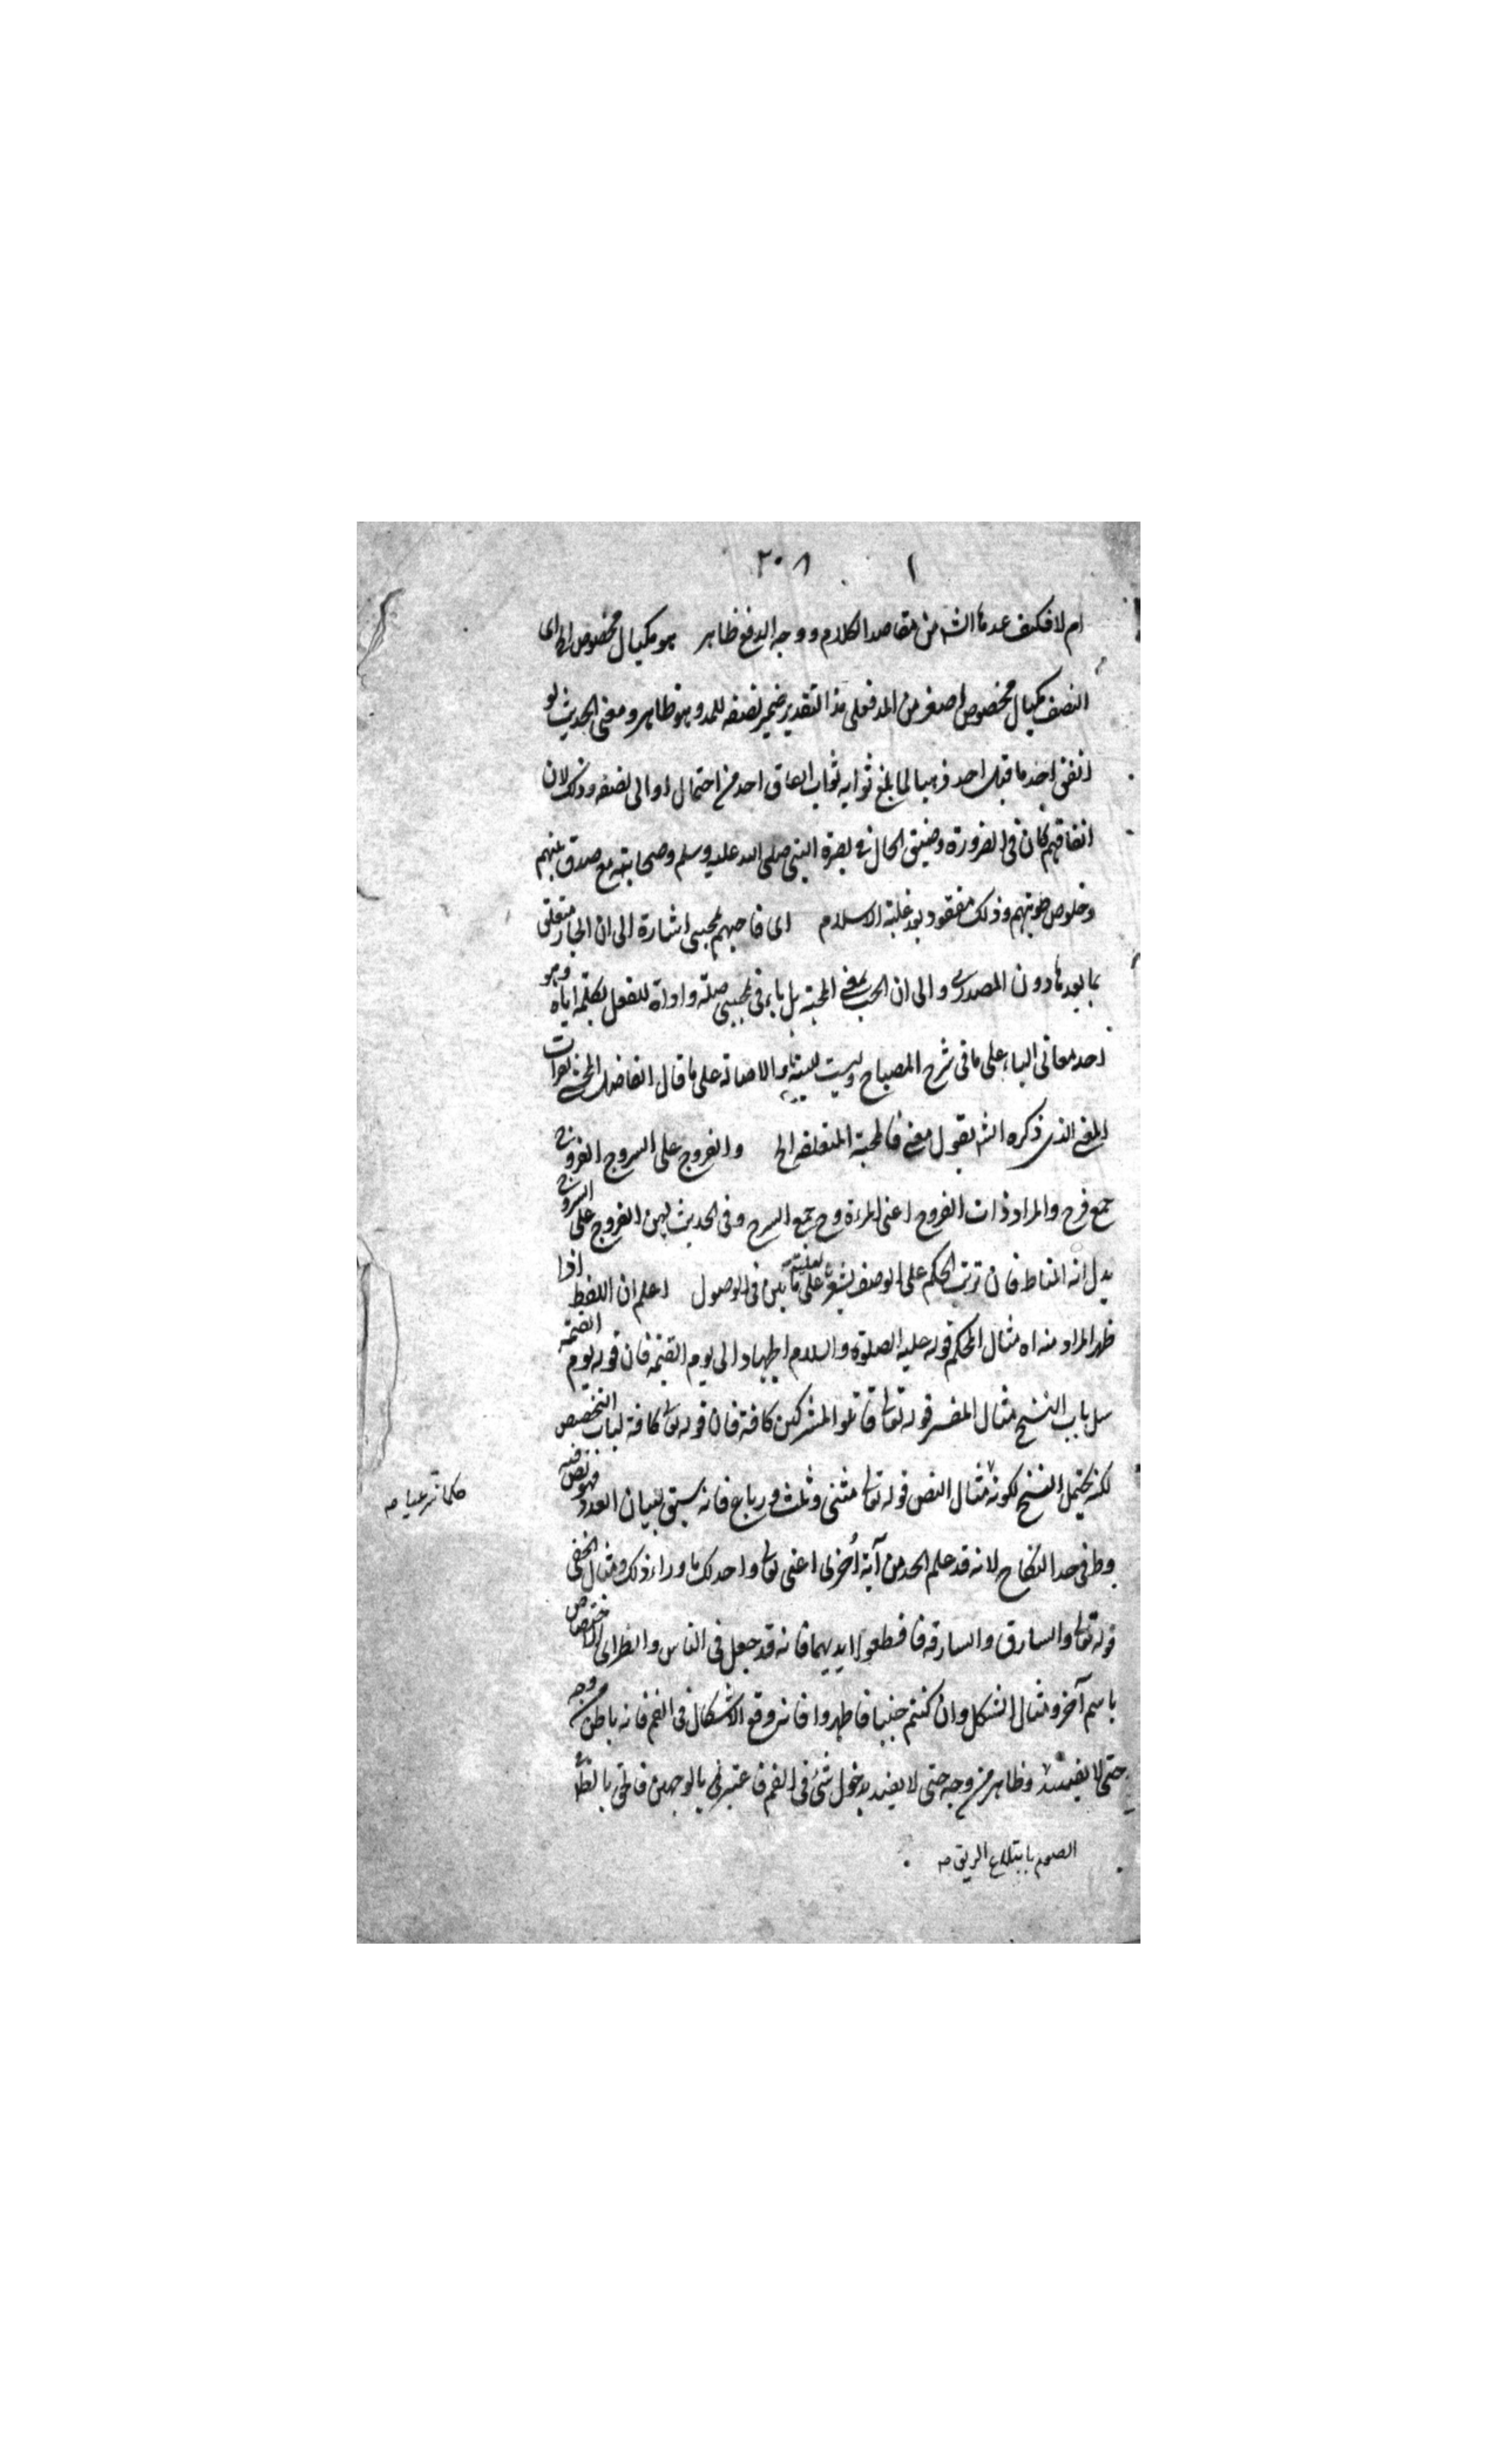 ١ ٢٠٨
ام لا فكيف عدها الش من مقاصد الكلام ووجه الدفع ظاهر هو مكيال مخصوص الخ اى
النصف مكيال مخصوص اصغر من المد فعلى هذا التقدير ضمير نصفه للمد وهو ظاهر ومعنى الحديث لو
انفق احدكم احد ذهبا لما بلغ ثوابه ثواب انفاق احد من احتمال او الى نصفه وذلك لان
انفاقهم كان فى الضرورة وضيق الحال فى نصرة النبى صلى الله عليه وسلم وصحابته مع صدق نيتهم
وخلوص طويتهم وذلك مفقود بعد غلبة الاسلام اى فاحبهم بحبى اشارة الى ان الجار متعلق
بما بعدها دون المصدر والى ان الحب بمعنى المحبة بل باء فى بحبى صلة واداة للفعل بكلمة اياه وهو
احد معانى الباء على ما فى شرح المصباح وليست والاصالة على ما قال الفاضل المحشى
المعنى الذى ذكره الش بقول معنى فالمحبة المتعلقة الخ والفروج على السروج الفروج
جمع فرج والمراد ذات الفروج اعنى المرءة وج جمع السرج وفى الحديث لعن الفروج على السروج
يدل انه المناط فان ترتب الحكم على الوصف يشعر بعليته على ما بين فى الاصول اعلم ان اللفظ اذا
ظهر المراد منه اه مثال المحكم قوله عليه الصلوة والسلام الجهاد الى يوم القيمة فان قوله يوم القيمة
سل باب النسخ مثال المفسر قوله تعالى قاتلوا المشركين كافة فان قوله تعالى كافة لباب التخصيص
لكنه يحتمل النسخ لكونه مثال النص قوله تعالى مثنى وثلث ورباع فانه سيق لبيان العدد فهو نص فيه
وظ فى حد النكاح لانه قد علم الحد من آية اخرى اعنى تعالى واحل لكم ما وراء ذلك ومثال الخفى
قوله تعالى والسارق والسارقة فاقطعوا ايديهما فانه قد جعل فى الناس والطرار لاختصاص
باسم آخر ومثال المشكل وان كنتم جنبا فاطهروا فانه وقع الاشكال فى الفم فانه باطن من وجه
حتى لا يفسد وظاهر من وجه حتى لا يفسد بدخول شئ فى الفم فاعتبر بالوجهين فالحق بالظا
حكما شرعيا صه
الصوم بابتلاع الريق صه